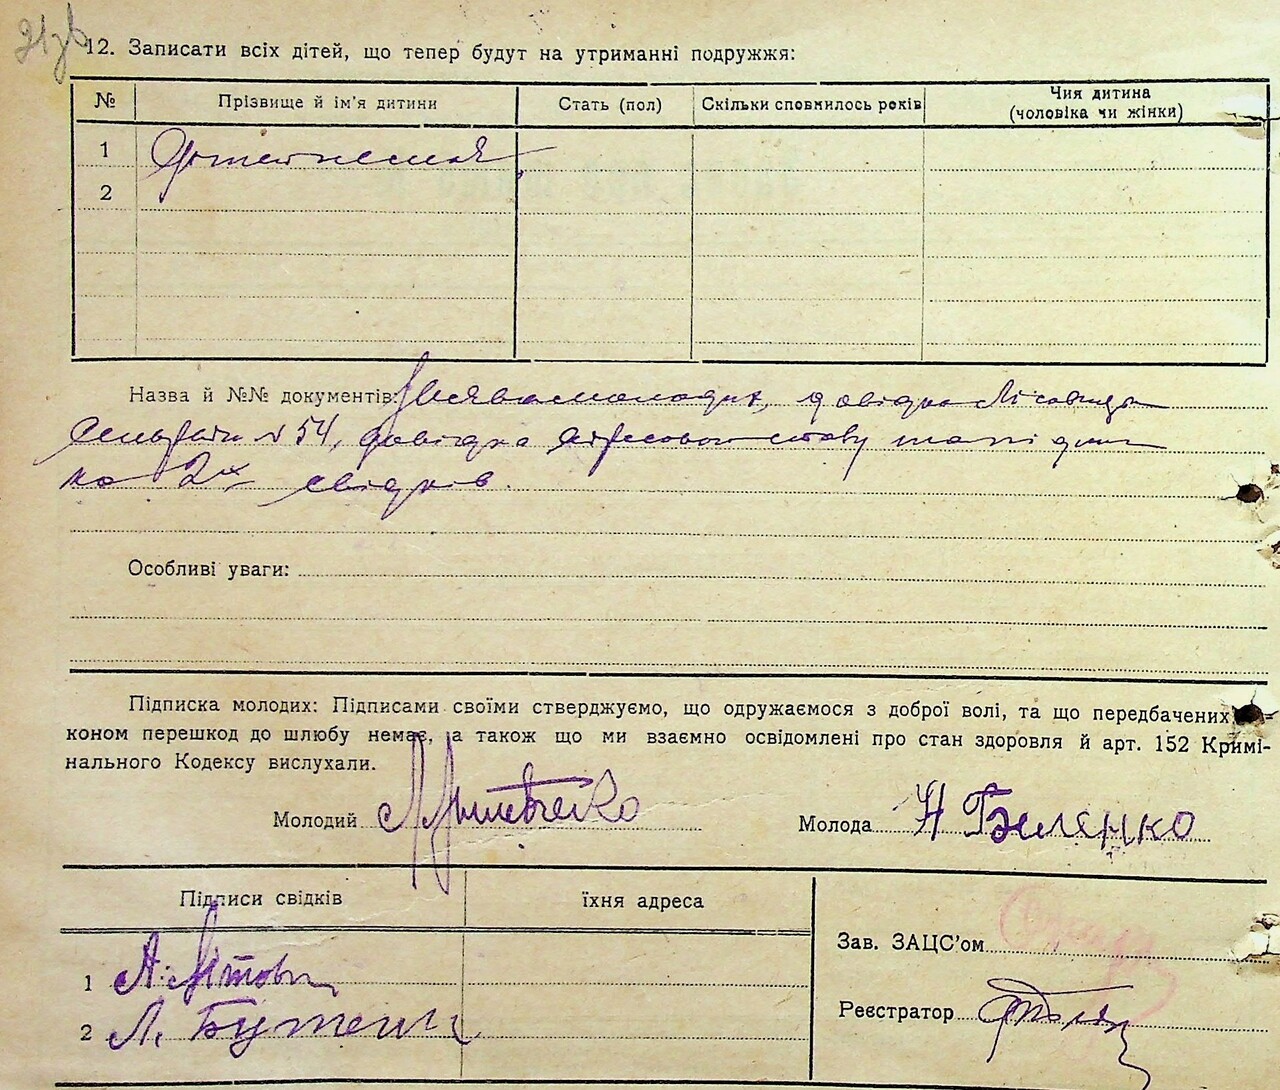 21зв
12. Записати всіх дітей, що тепер будут на утриманні подружжя:
№ Прізвище й ім'я дитини Стать (пол) Скільки сповнилось років Чия дитина (чоловіка чи жінки)
1
2
Назва й №№ документів: довідка
Сельради № 54, довідка
ка 2х свідків.
Особливі уваги:
Підписка молодих: Підписами своїми стверджуємо, що одружаємося з доброї волі, та що передбачених
коном перешкод до шлюбу немає, а також що ми взаємно освідомлені про стан здоровля й арт. 152 Кримі-
нального Кодексу вислухали.
Молодий Молода Н Биленко
Підписи свідків їхня адреса
Зав. ЗАЦС'ом
1 А.
Реєстратор
2 Л.